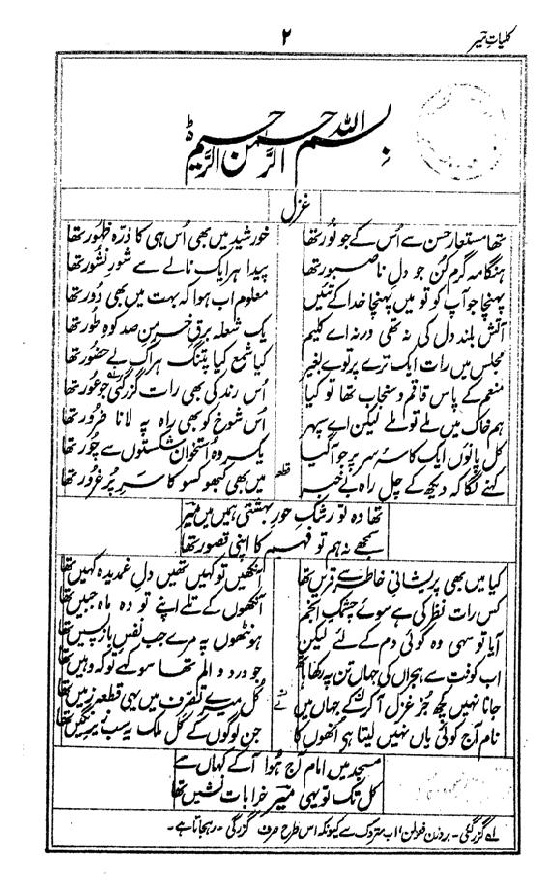 ۲
کلیاتِ میر
بسم اللہ الرحمٰن الرحیم
غزل
تھا مستعار حسن سے اُس کے جو نور تھا خورشید میں بھی اُس ہی کا ذرّہ ظہور تھا
ہنگامہ گرم کُن جو دلِ ناصبور تھا پیدا ہر ایک نالے سے شورِ نشور تھا
پہنچا جو آپ کو تو میں پہنچا خدا کے تئیں معلوم اب ہوا کہ بہت میں بھی دُور تھا
آتش بلند دل کی نہ تھی ورنہ اے کلیم یک شعلہ برقِ خرمنِ صد کوہِ طور تھا
مجلس میں رات ایک ترے پرتوے بغیر کیا شمع کیا پتنگ ہر اک بے حضور تھا
منعم کے پاس قاقم و سنجاب تھا تو کیا اُس رند کی بھی رات گزر گئی جو عور تھا
ہم خاک میں ملے تو ملے لیکن اے سپہر اُس شوخ کو بھی راہ پہ لانا ضرور تھا
کل پانوں ایک کاسۂ سر پر جو آ گیا یکسر وہ اُستخوان شکستوں سے چور تھا
کہنے لگا کہ دیکھ کے چل راہ بے خبر قطعہ میں بھی کبھو کسو کا سرِ پُر غرور تھا
تھا وہ تو رشکِ حورِ بہشتی ہمیں میں میرؔ
سمجھے نہ ہم تو فہم کا اپنی قصور تھا
کیا میں بھی پریشانیِ خاطر سے قریں تھا آنکھیں تو کہیں تھیں دلِ غمدیدہ کہیں تھا
کس رات نظر کی ہے سوئے چشمکِ انجم آنکھوں کے تلے اپنے تو وہ ماہ جبیں تھا
آیا تو سہی وہ کوئی دم کے لئے لیکن ہونٹھوں پہ مرے جب نفسِ باز پسیں تھا
اب کوفت سے ہجراں کی جہاں تن پہ رکھا ہاتھ جو درد و الم تھا سو کہے تو کہ وہیں تھا
جانا نہیں کچھ جُز غزل آ کر کے جہاں میں کُل میرے تصرف میں یہی قطعہ زمیں تھا
نام آج کوئی یاں نہیں لیتا ہی اُنھوں کا جن لوگوں کے کل ملک یہ سب زیرِ نگیں تھا
مسجد میں امام آج ہُوا آ کے کہاں سے
کل تک تو یہی میرؔ خرابات نشیں تھا
لے گزر گئی۔ بروزن فعولن اب متروک ہے کیونکہ اس طرح صرف گزر گی، رہجاتا ہے۔